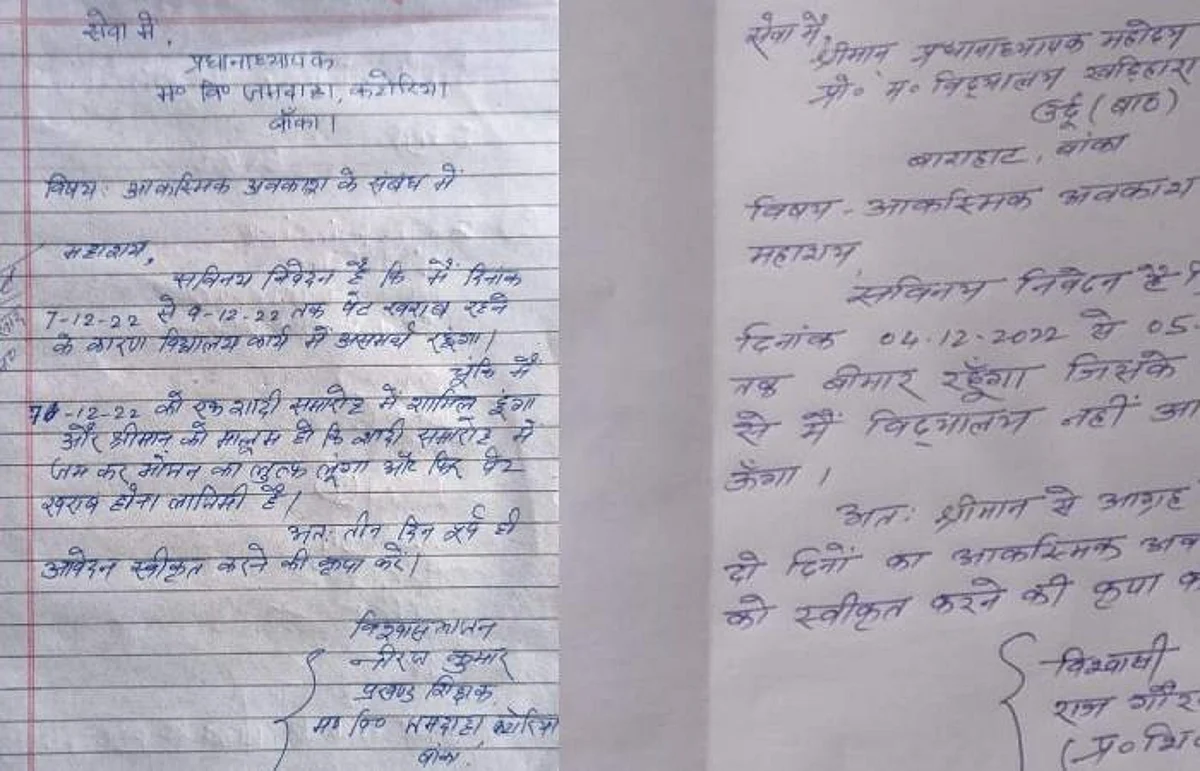 सेवा में,
प्रधानाध्यापक
म० वि० जमदाहा, कटोरिया
बाँका।
विषय: आकस्मिक अवकाश के संबंध में
महाशय,
सविनय निवेदन है कि मैं दिनांक
7-12-22 से 9-12-22 तक पेट खराब रहने
के कारण विद्यालय कार्य में असमर्थ रहूंगा।
चूंकि मैं
-12-22 को एक शादी समारोह में शामिल हूंगा
और श्रीमान को मालूम हो कि शादी समारोह में
जम कर भोजन का लुत्फ लूंगा और फिर पेट
खराब होना लाजिमी है।
अत: तीन दिन पूर्व ही
आवेदन स्वीकृत करने की कृपा करें।
विश्वासभाजन
नीरज कुमार
प्रखण्ड शिक्षक
म० वि० जमदाहा कटोरिया
बांका
सेवा में,
श्रीमान प्रधानाध्यापक महोदय
प्रो० म० विद्यालय खड़िहारा
उर्दू (बाठ)
बाराहाट, बांका
विषय - आकस्मिक अवकाश
महाशय,
सविनय निवेदन है
दिनांक 04.12.2022 से 05.
तक बीमार रहूँगा जिसके
से मैं विद्यालय नहीं आ
ऊँगा।
अत: श्रीमान से आग्रह
दो दिनों का आकस्मिक अव
को स्वीकृत करने की कृपा क
विश्वासी
राज गौर
(प्र० शि०